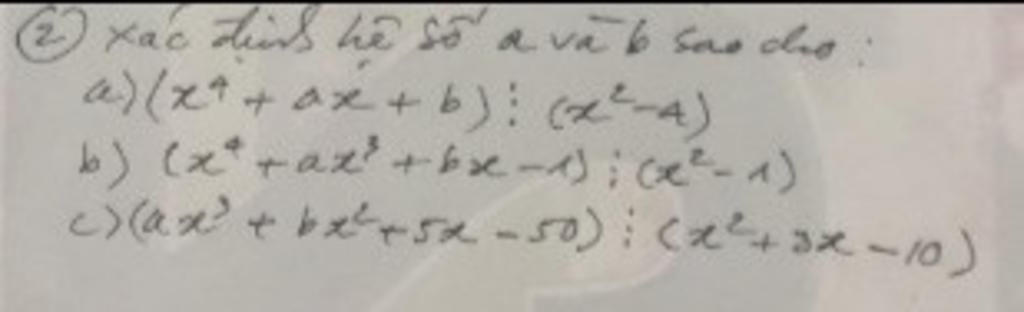 ② xác định hệ số a và b sao cho :
a) (x⁴ + ax + b) ⋮ (x² - 4)
b) (x⁴ + ax³ + bx - 1) ⋮ (x² - 1)
c) (ax³ + bx² + 5x - 50) ⋮ (x² + 3x - 10)